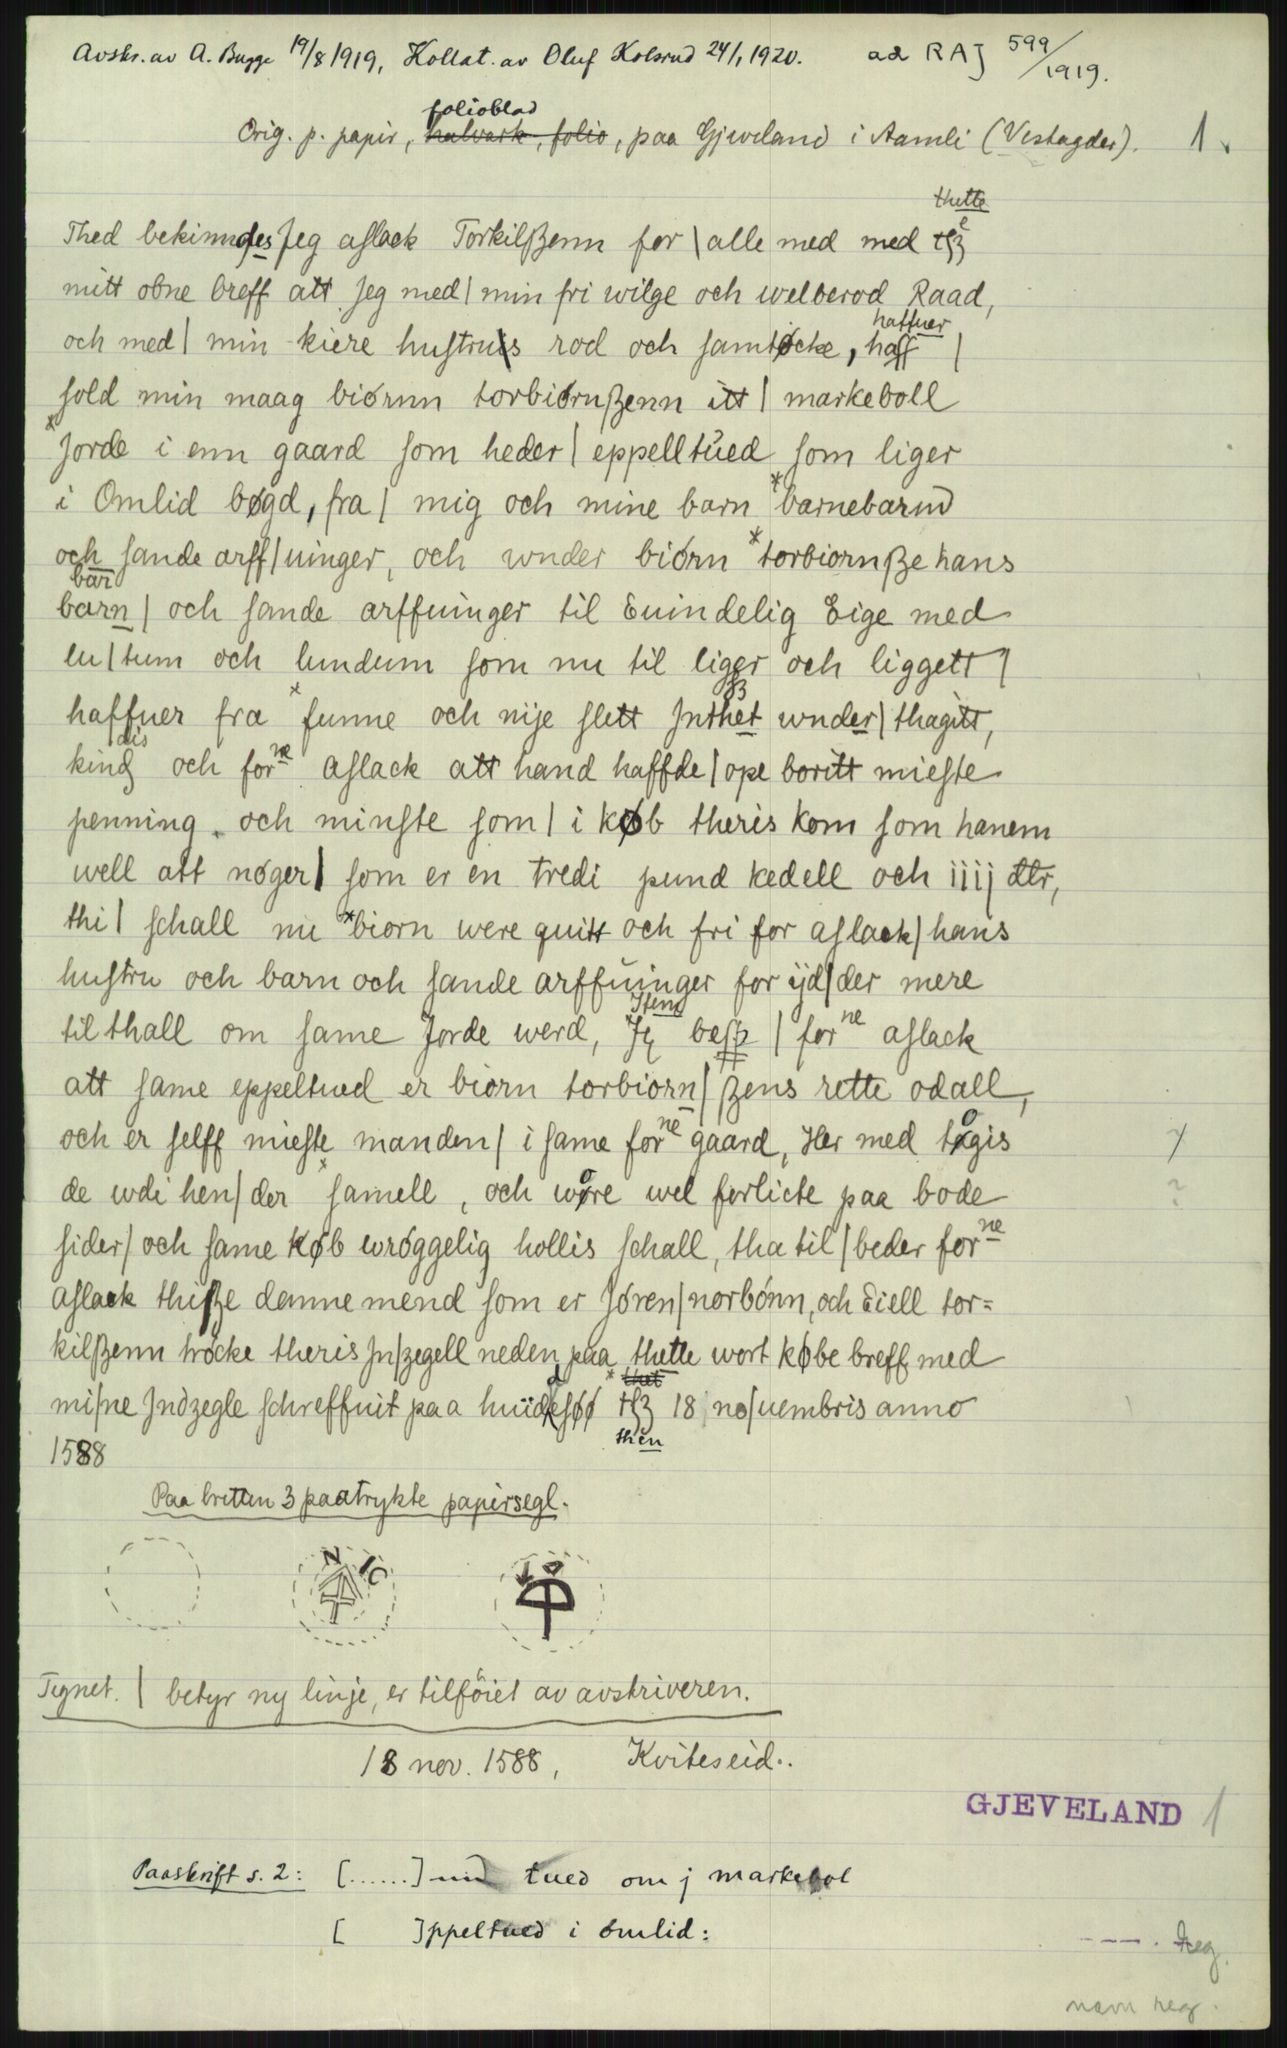 Avskr. av A. Bugge 19/8 1919, Kollat. av Oluf Kolsrud 24/1, 1920. ad RAJ 599/1919.
folioblad
Orig. p. papir, halvark, folio, paa Gjeveland i Aamli (Vestagder). 1.
thette
Thed bekinndes Jeg aslack Torkilßenn for | alle med med thꝫ
mitt obne breff att jeg med | min fri wilge och welberod Raad,
haffuer
och med | min kiere hustruis rod och samtøcke, haff |
sold min maag biórnn torbiórnßenn itt | markeboll
*Jorde i enn gaard som heder | eppelltŭed som liger
i Omlid bøgd, fra | mig och mine barn *barnebarnd
och sande arff|uinger, och wnder biórn *torbiornße hans
bar
barn | och sande arffuinger til Euindelig Eige med
lu|tum och lundum som nu til liger och liggett |
haffuer fra *funne och nije slett Jnthet wnder | thagitt,
dis
kind och forne aslack att hand haffde | ope boritt mieste
penning. och minste som | i køb theris kom som hanem
well att nóger | som er en tredi pund kedell och iiij dlr,
thi | schall nu *biorn were quitt och fri for aslack | hans
hustru och barn och sande arffŭinger for ijd|der mere
Item
til thall om same Jorde werd, beſþ | forne aslack
att same eppeltued er biorn torbiorn|ßens rette odall,
och er selff mieste manden | i same forne gaard, Her med togis
de wdi hen|der *samell, och wore wel forlicte paa bode
sider | och same køb wróggelig hollis schall, tha til | beder forne
aslack thiße danne mend som er Jóren | norbónn, och diell tor=
kilßenn trócke theris Jn|zegell neden paa thette wort købe breff med
*thet
mi|ne Jndzegle schreffuit paa huidesøø thꝫ 18 no|uembris anno
then
1588
Paa bretten 3 paatrykte papirsegl.
N IC
Tegnet. | betyr ny linje, er tilföiet av avskriveren.
18 nov. 1588, Kviteseid..
GJEVELAND 1
Paaskrift s. 2: [......] tued om j markebol
[ ]ppeltued i omlid:
---. Reg.
navn reg.